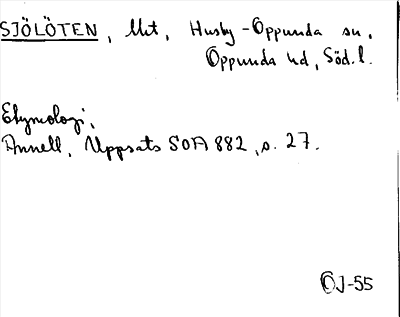 SJÖLÖTEN, Ut, Husby-Oppunda sn,
Oppunda hd, Söd. l.
Etymologi,
Annell, Uppsats SOA 882, s. 27.
ÖJ-55